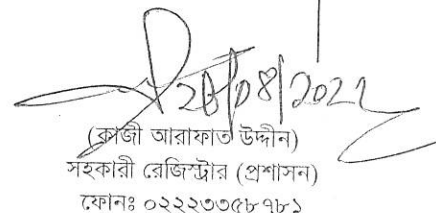 28/08/2022
(কাজী আরাফাত উদ্দীন)
সহকারী রেজিস্ট্রার (প্রশাসন)
ফোনঃ ০২২২৩৩৫৮৭৮১